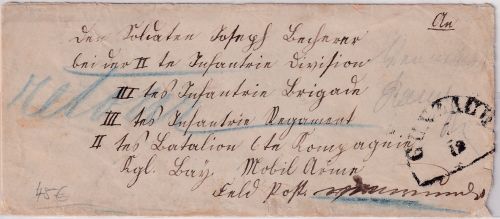 An
den Soldaten Joseph Becherer
bei der II te Infantrie Division
III tes Infantrie Brigade
III tes Infantrie Regament
II tes Batalion 6te Kompagnie
Kgl. Bay. Mobil Arme
Feld Post
retour
45€